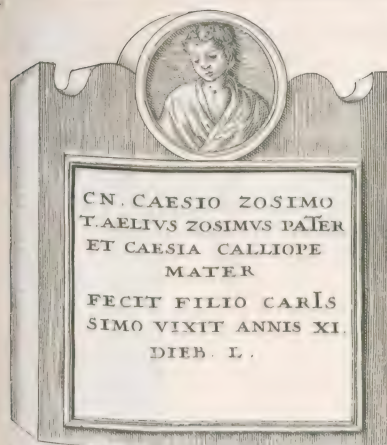 CN. CAESIO ZOSIMO
T. AELIVS ZOSIMVS PATER
ET CAESIA CALLIOPE
MATER
FECIT FILIO CARIS
SIMO VIXIT ANNIS XI.
DIEB. L.